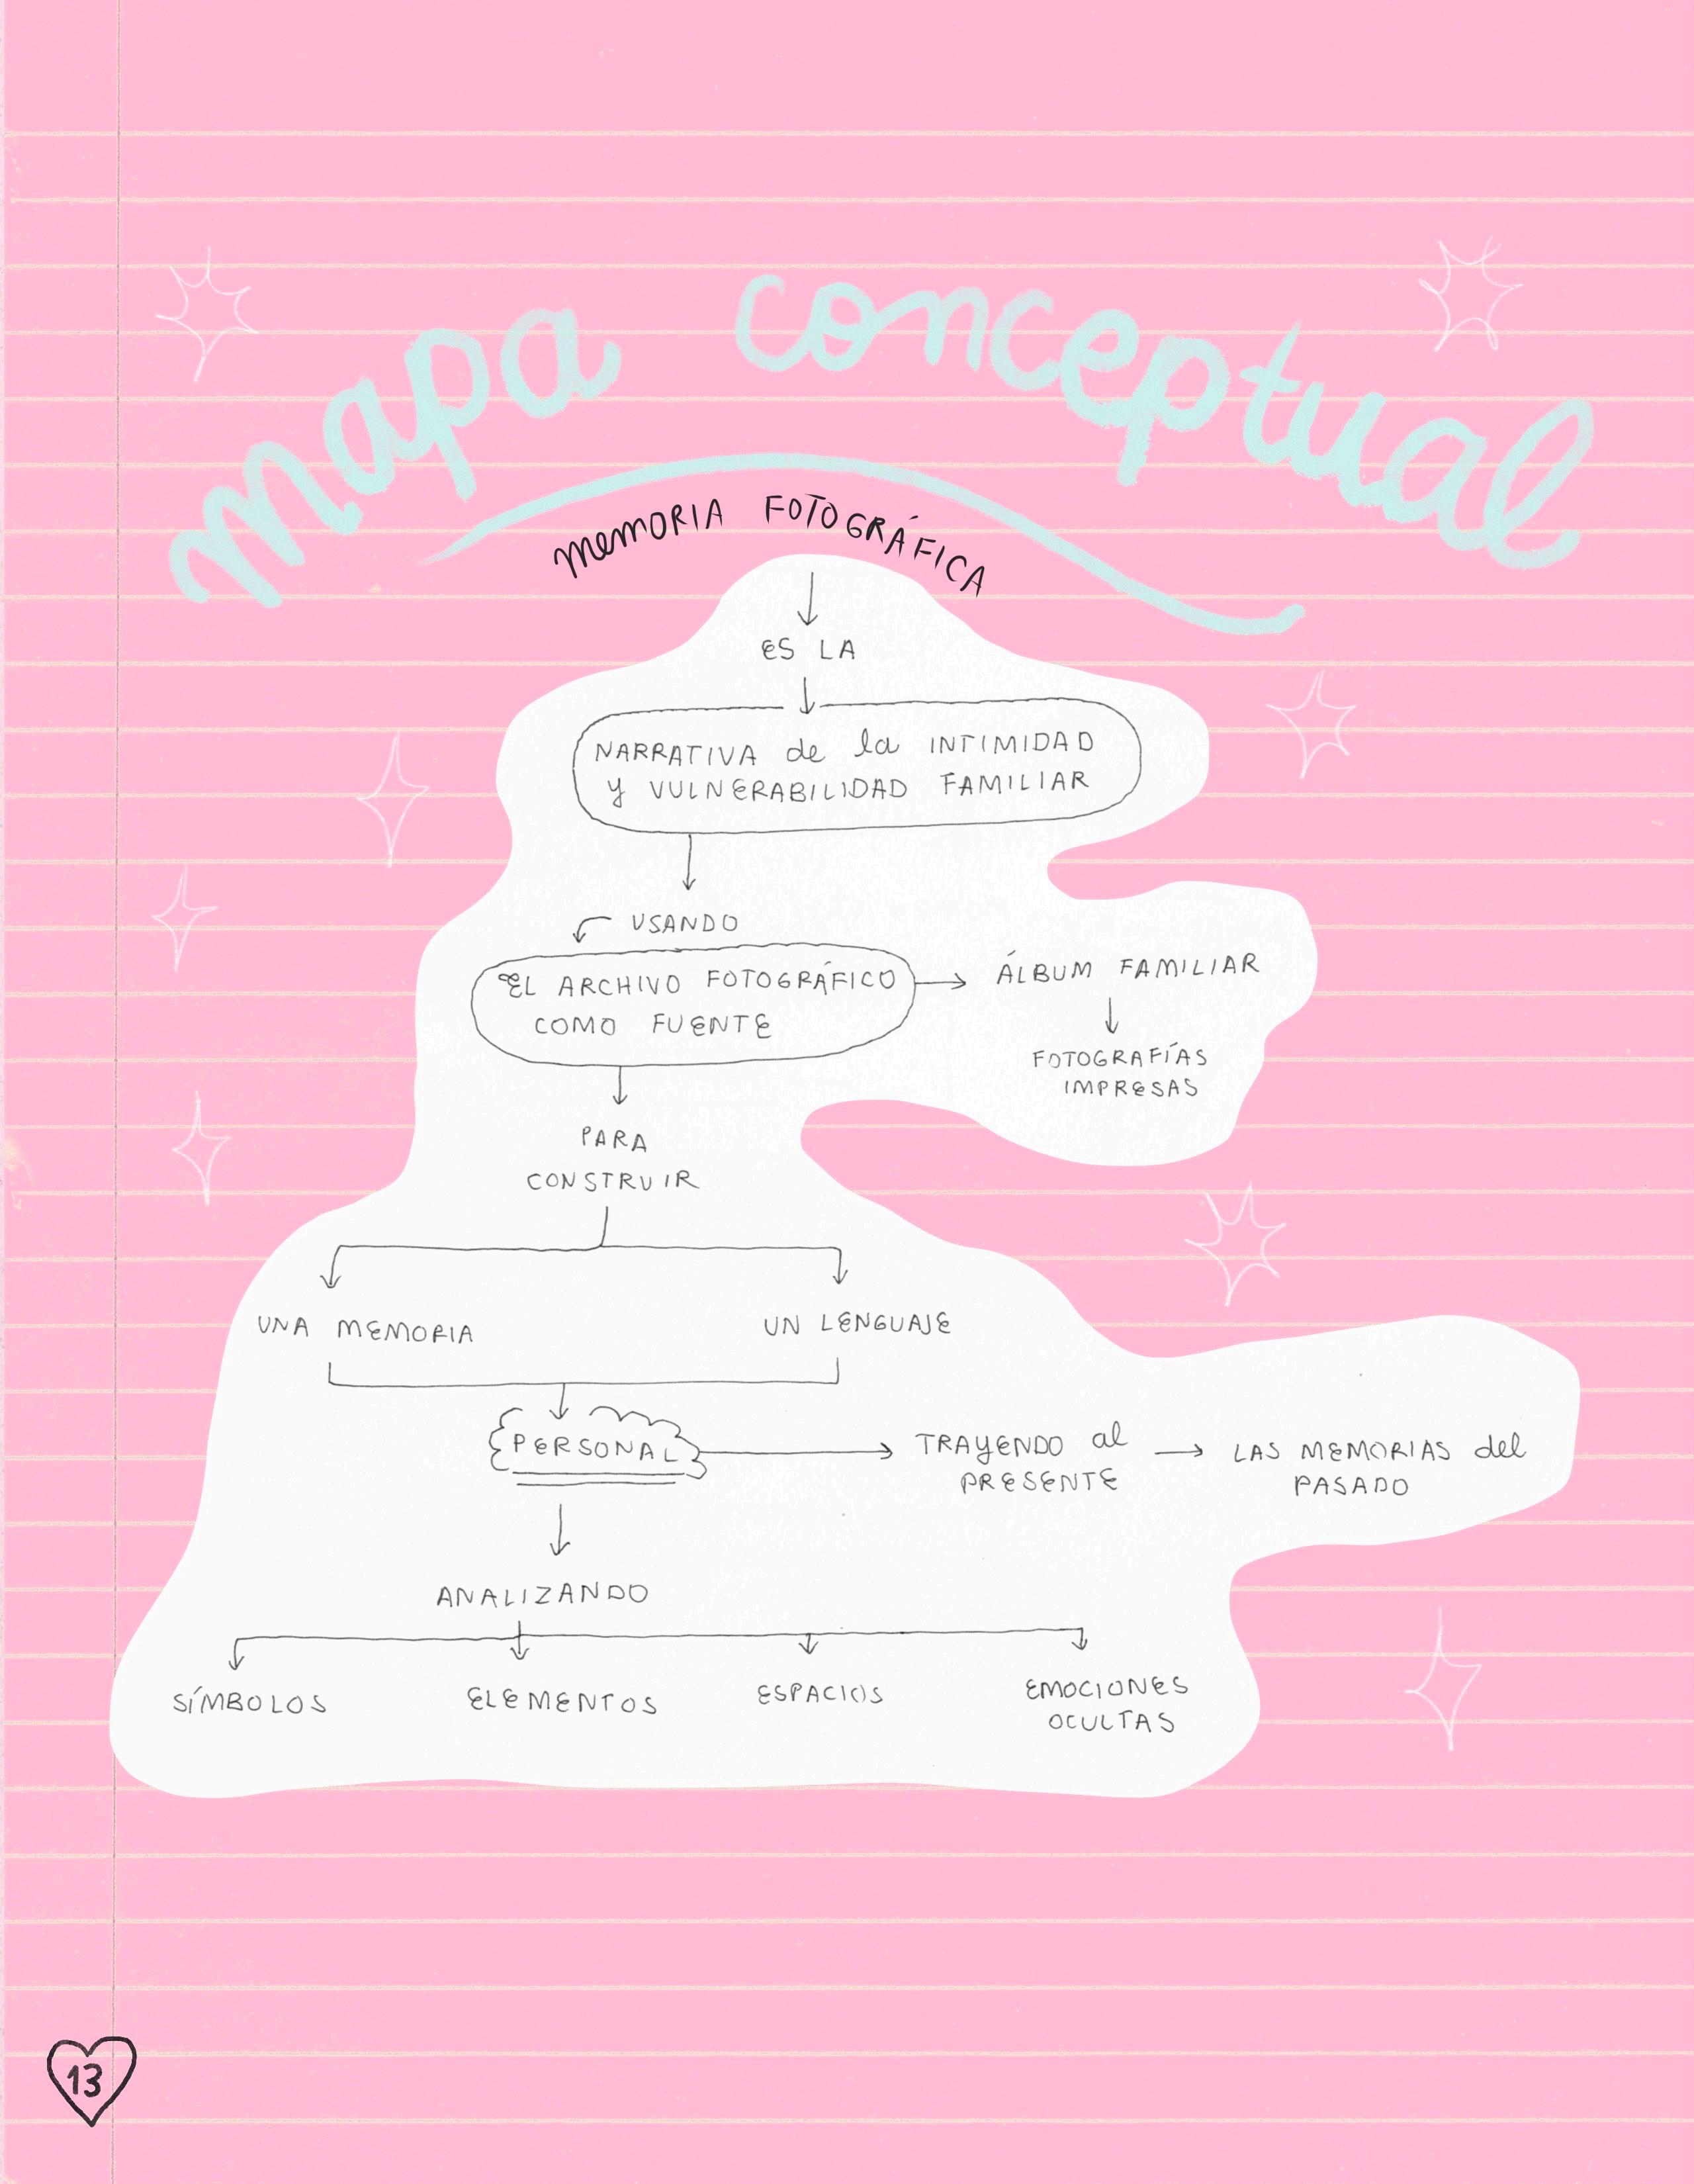 mapa conceptual
MEMORIA FOTOGRÁFICA
ES LA
NARRATIVA de la INTIMIDAD
y VULNERABILIDAD FAMILIAR
USANDO
EL ARCHIVO FOTOGRÁFICO
COMO FUENTE
ÁLBUM FAMILIAR
FOTOGRAFÍAS
IMPRESAS
PARA
CONSTRUIR
UNA MEMORIA
UN LENGUAJE
PERSONAL
TRAYENDO al
PRESENTE
LAS MEMORIAS del
PASADO
ANALIZANDO
SÍMBOLOS
ELEMENTOS
ESPACIOS
EMOCIONES
OCULTAS
13